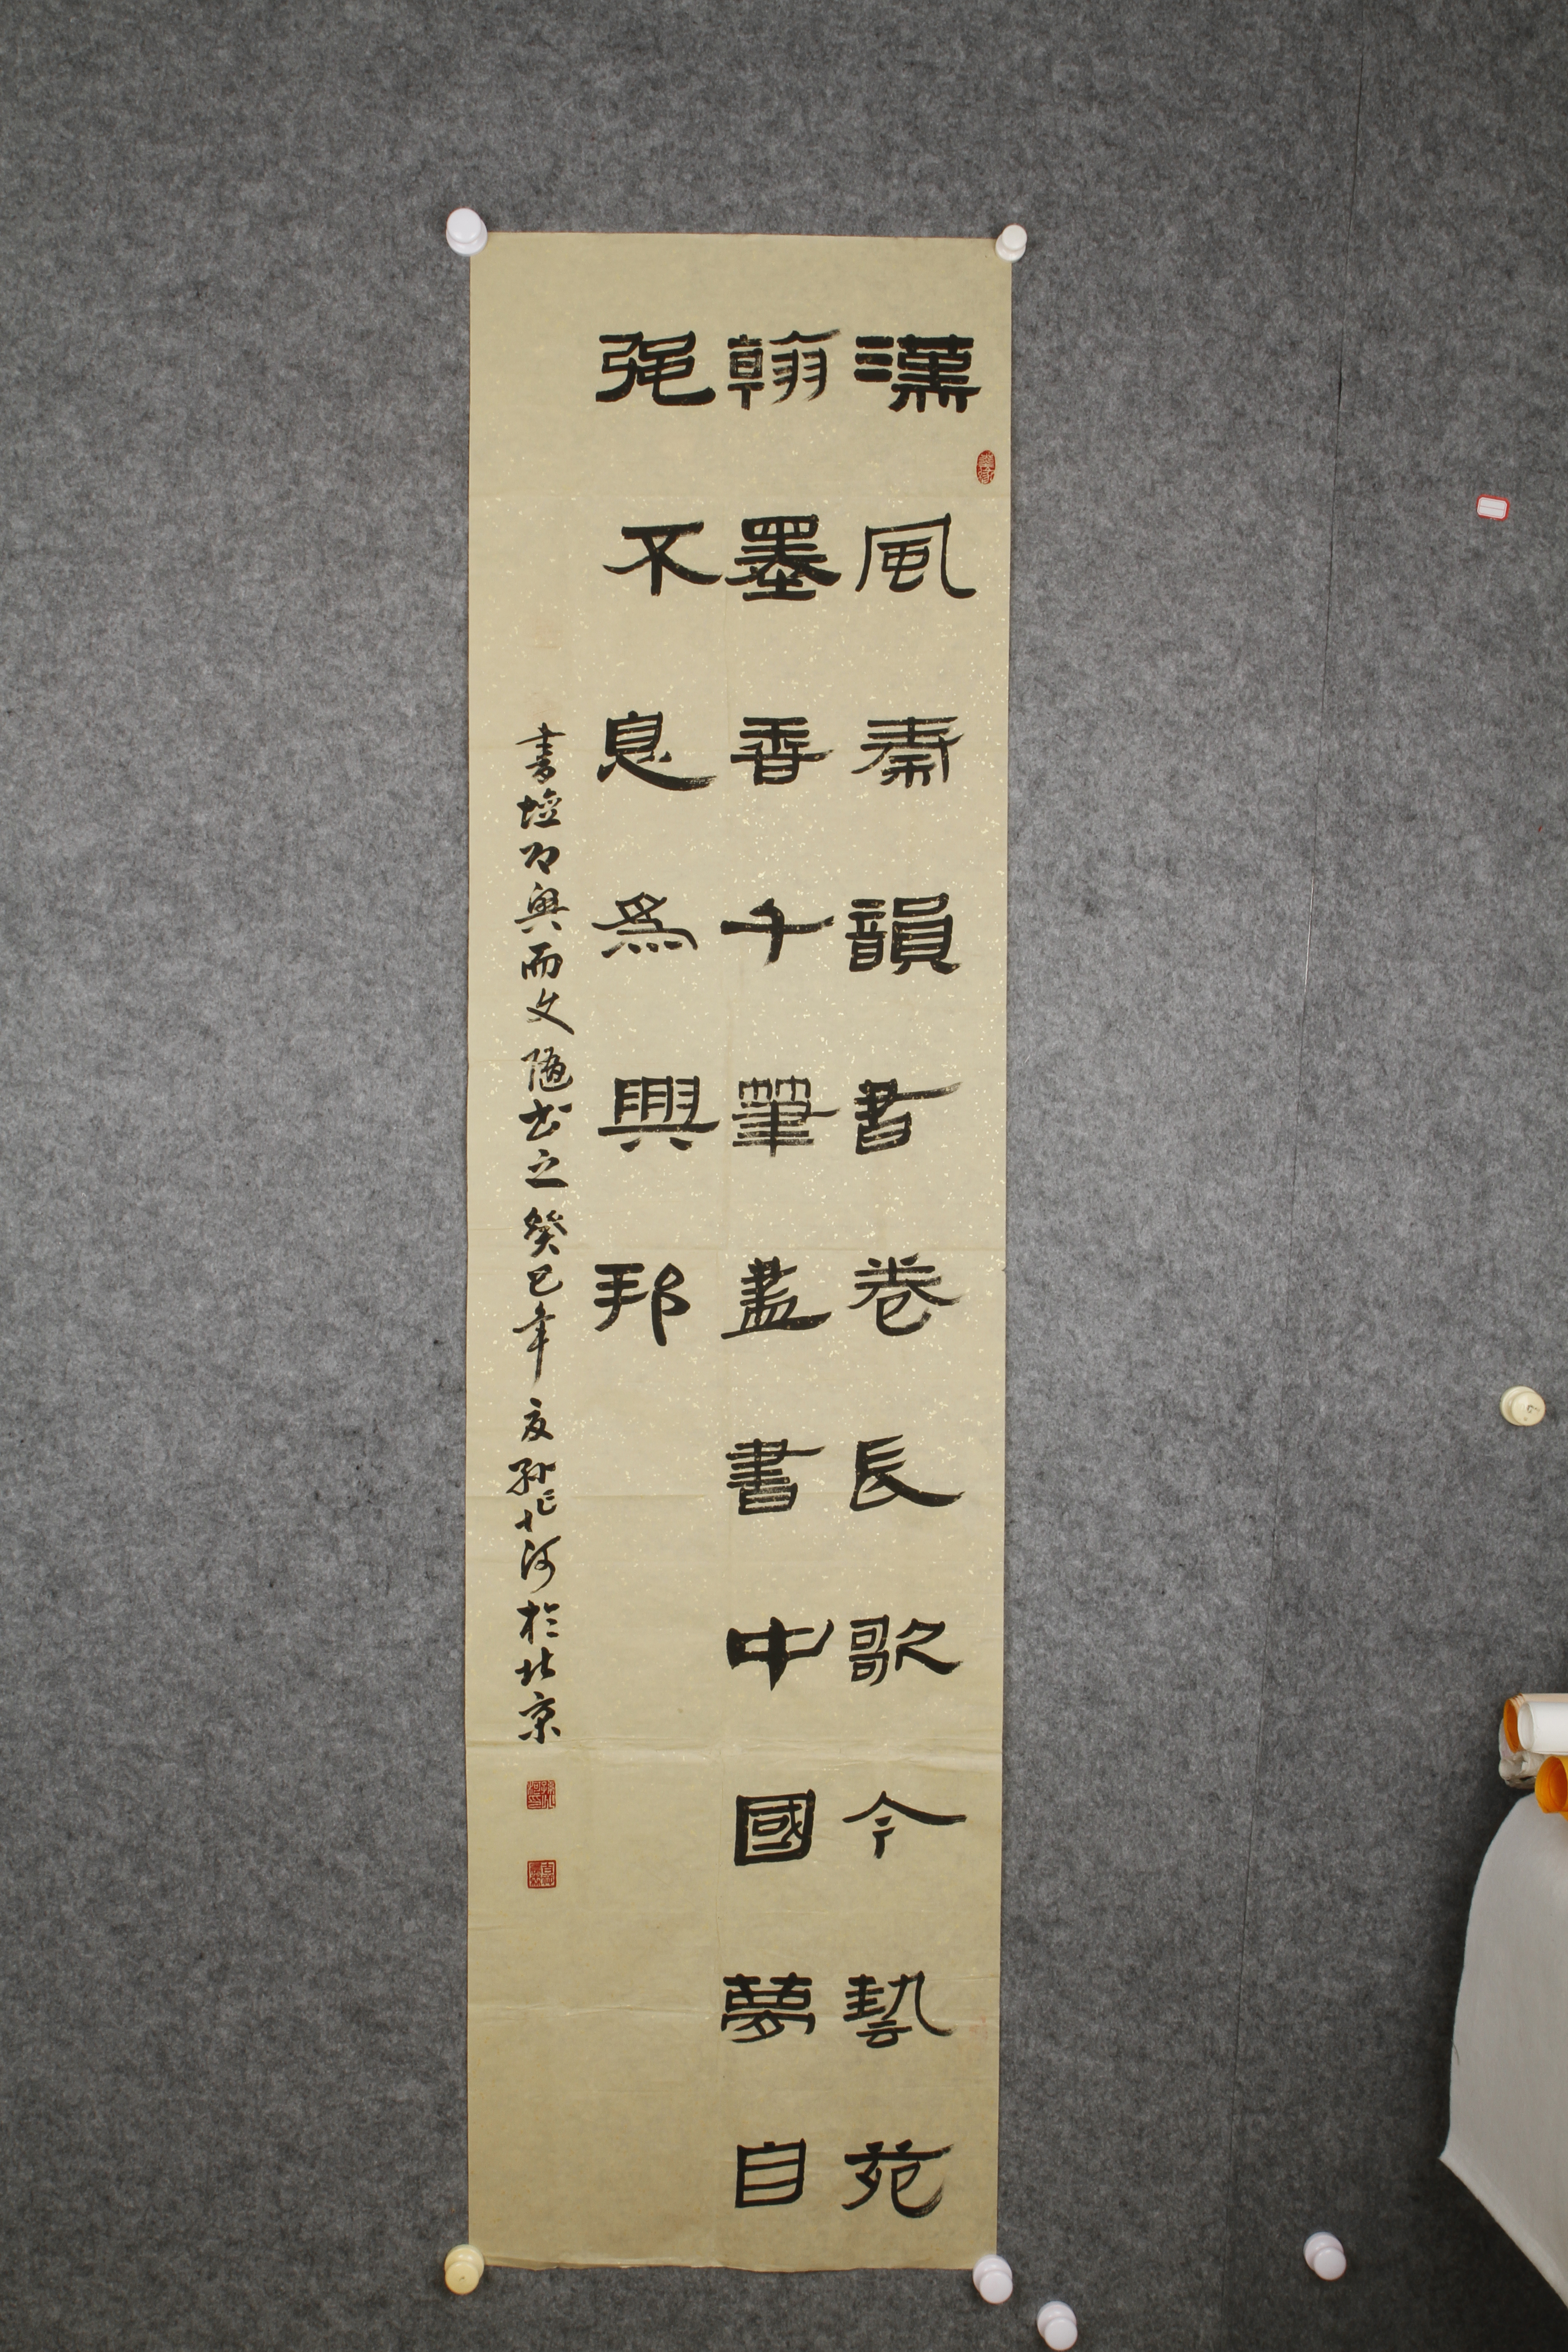 漢風秦韻書卷長歌今藝苑
翰墨香千筆盡書中國夢自
強不息為興邦
書壇即興而文隨书之癸巳年夏孫河於北京